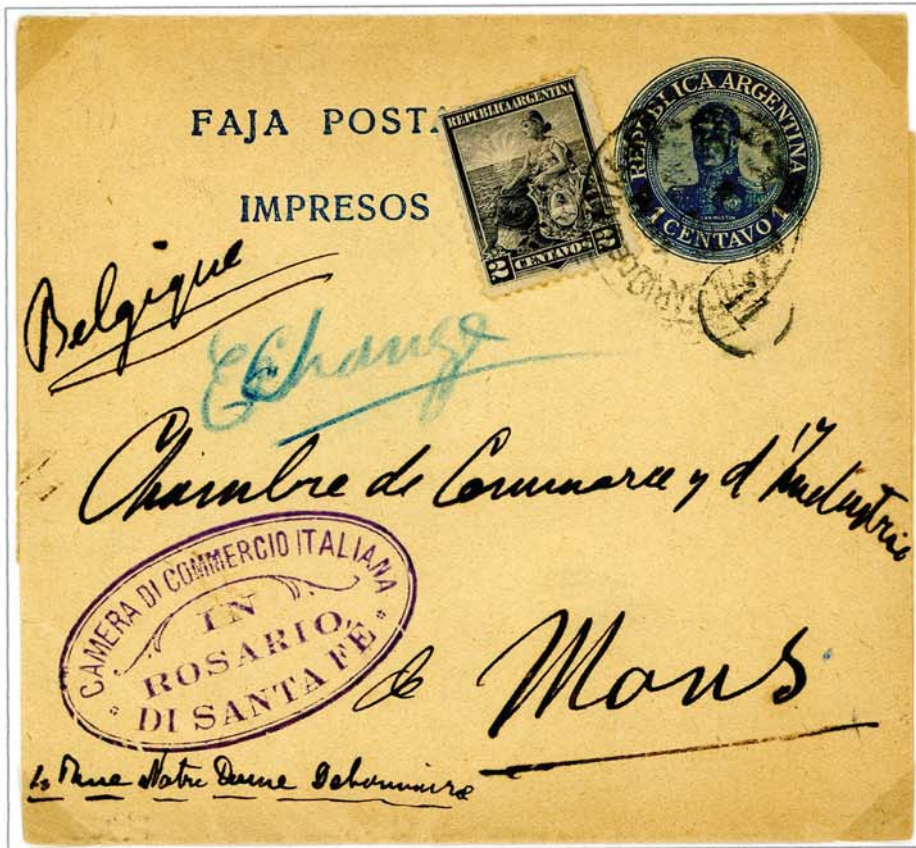 FAJA POSTA
IMPRESOS
REPUBLICA ARGENTINA
2 CENTAVOS 2
REPUBLICA ARGENTINA
SAN MARTIN
1 CENTAVO 1
Belgique
Echange
Chambre de Commerce y d'Industrie
CAMERA DI COMMERCIO ITALIANA
IN
ROSARIO
DI SANTA FÉ
de Mons
Rue Notre Dame Debonnaire